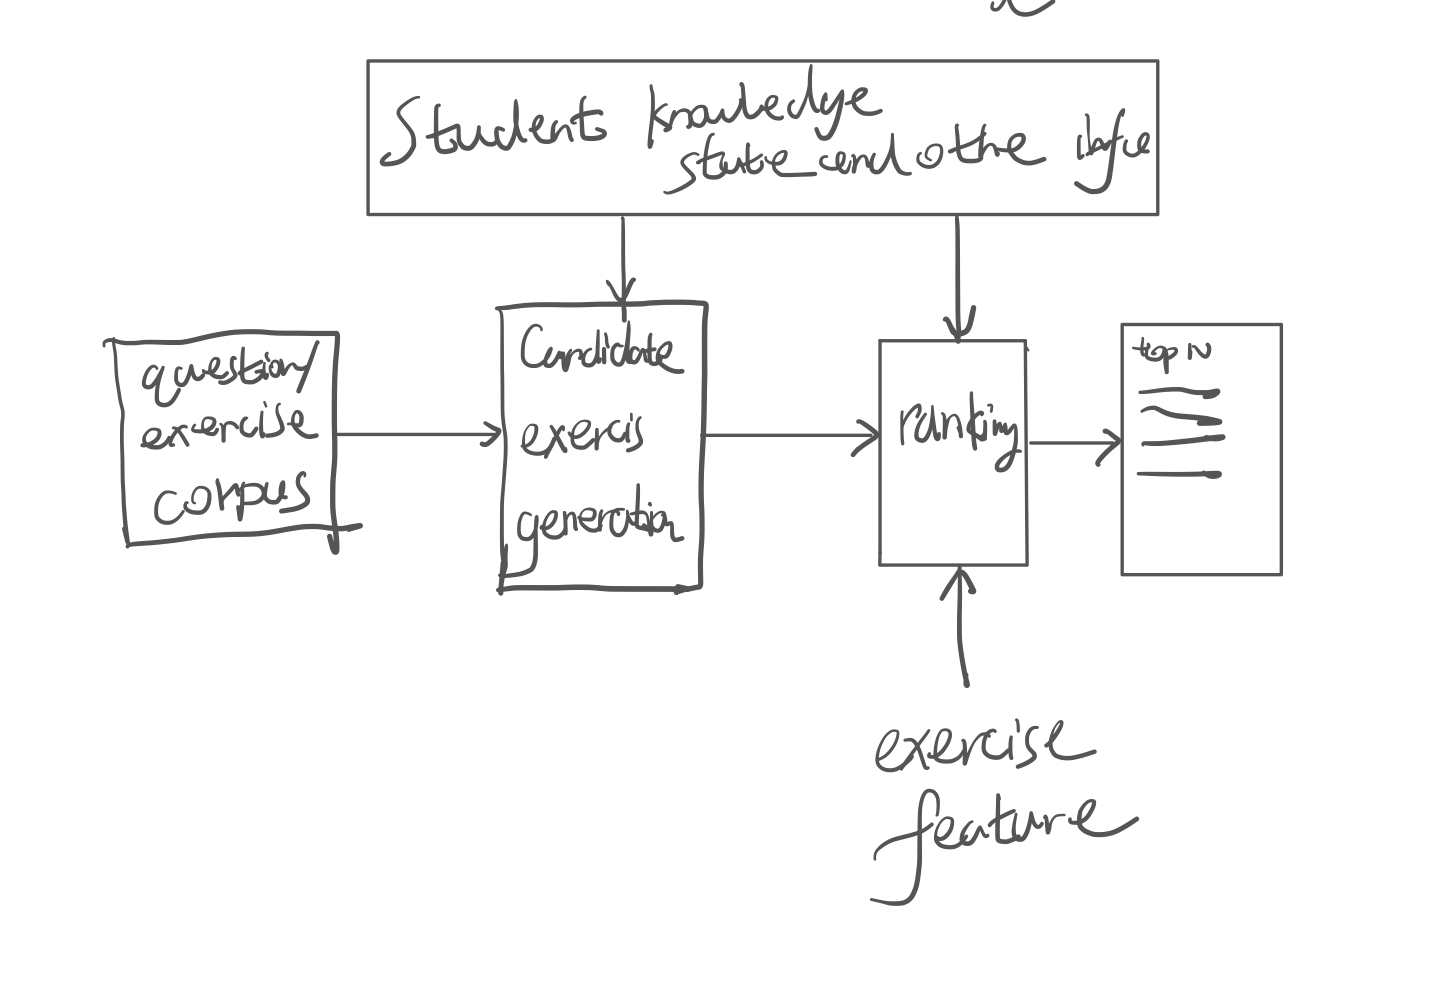 Students knowledge
state and othe info
question/
exercise
corpus
Candidate
exercis
generation
ranking
top N
exercise
feature